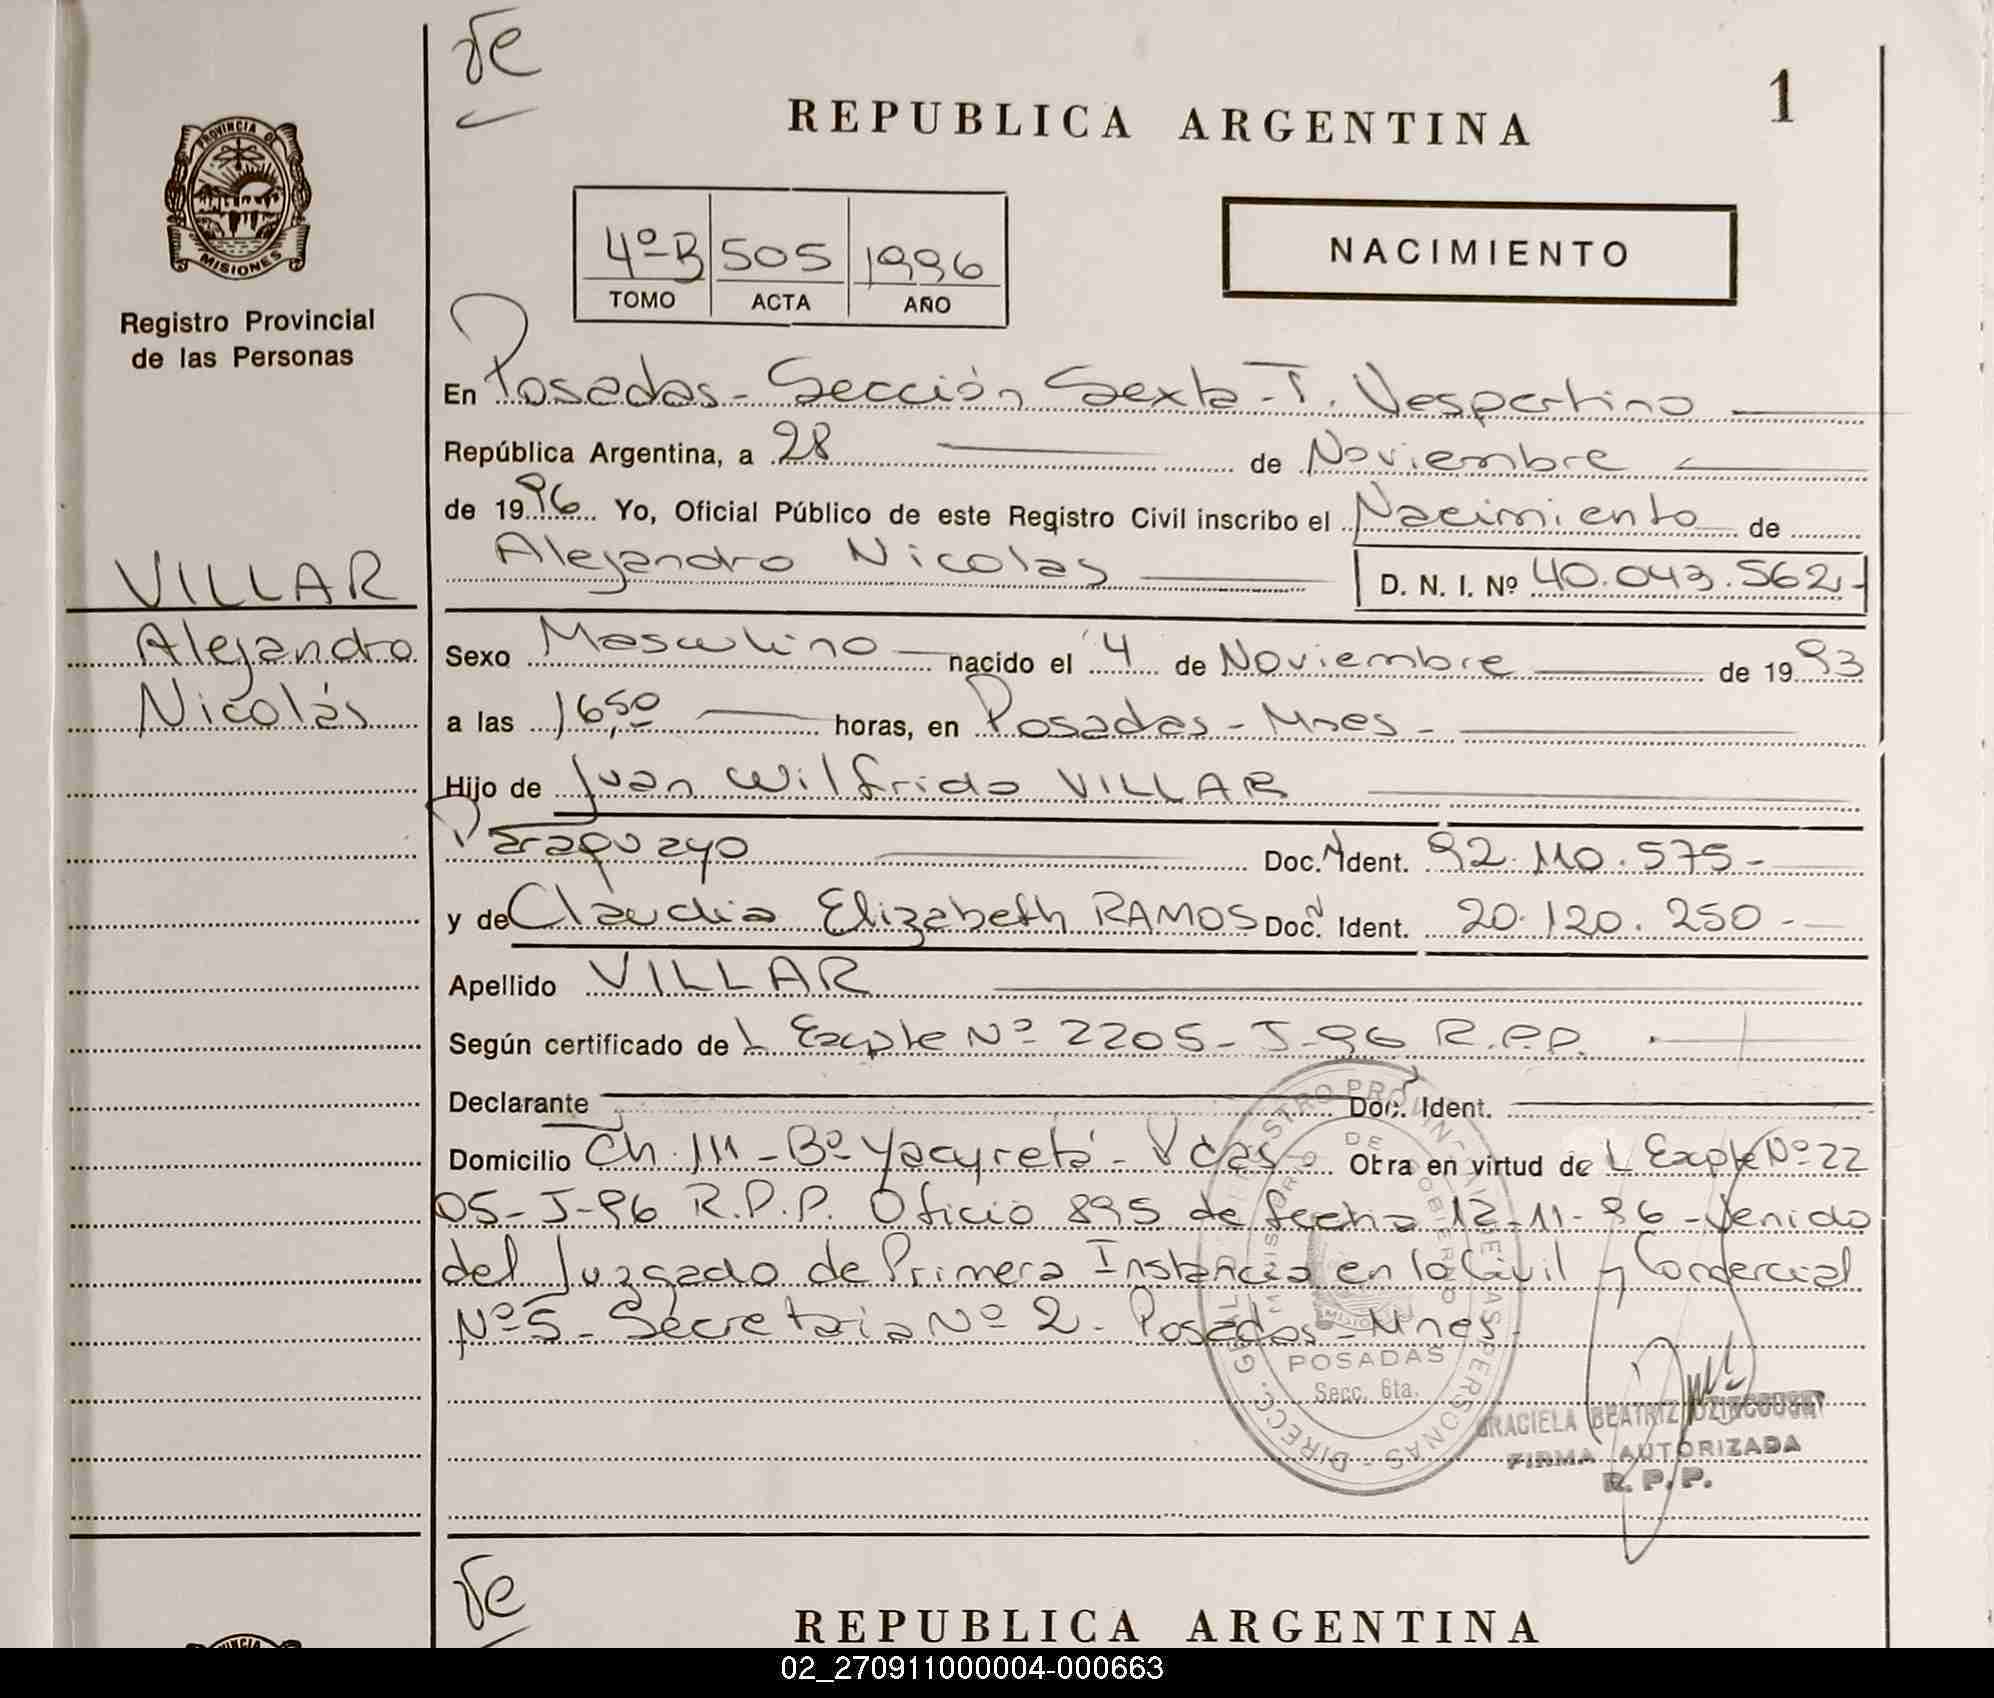 re
REPUBLICA ARGENTINA
1
PROVINCIA DE
MISIONES
Registro Provincial
de las Personas
4º-B 505 1996
TOMO ACTA AÑO
NACIMIENTO
En Posadas - Sección Sexta - T. Vespertino
República Argentina, a 28 de Noviembre
de 1996 Yo, Oficial Público de este Registro Civil inscribo el Nacimiento de
Alejandro Nicolas D. N. I. Nº 40.043.562.-
VILLAR
Alejandro
Nicolás
Sexo Masculino nacido el 4 de Noviembre de 1993
a las 16,50 horas, en Posadas - Mnes -
Hijo de Juan Wilfrido VILLAR
Paraguayo Doc. N Ident. 92.110.575-
y de Claudia Elizabeth RAMOS Doc. N Ident. 20.120.250-
Apellido VILLAR
Según certificado de L Expte Nº 2205-J-96 R.P.P.
Declarante Doc. Ident.
Domicilio Ch. 111 - Bº Yacyretá - Pdas - Otra en virtud de L Expte Nº 22
05-J-96 R.P.P. Oficio 895 de fecha 12-11-96 - Venido
del Juzgado de Primera Instancia en lo Civil y Comercial
Nº 5 - Secretaria Nº 2 - Posadas - Mnes.
POSADAS
Secc. 6ta.
GRACIELA BEATRIZ
FIRMA AUTORIZADA
R. P. P.
re
REPUBLICA ARGENTINA
02_270911000004-000663